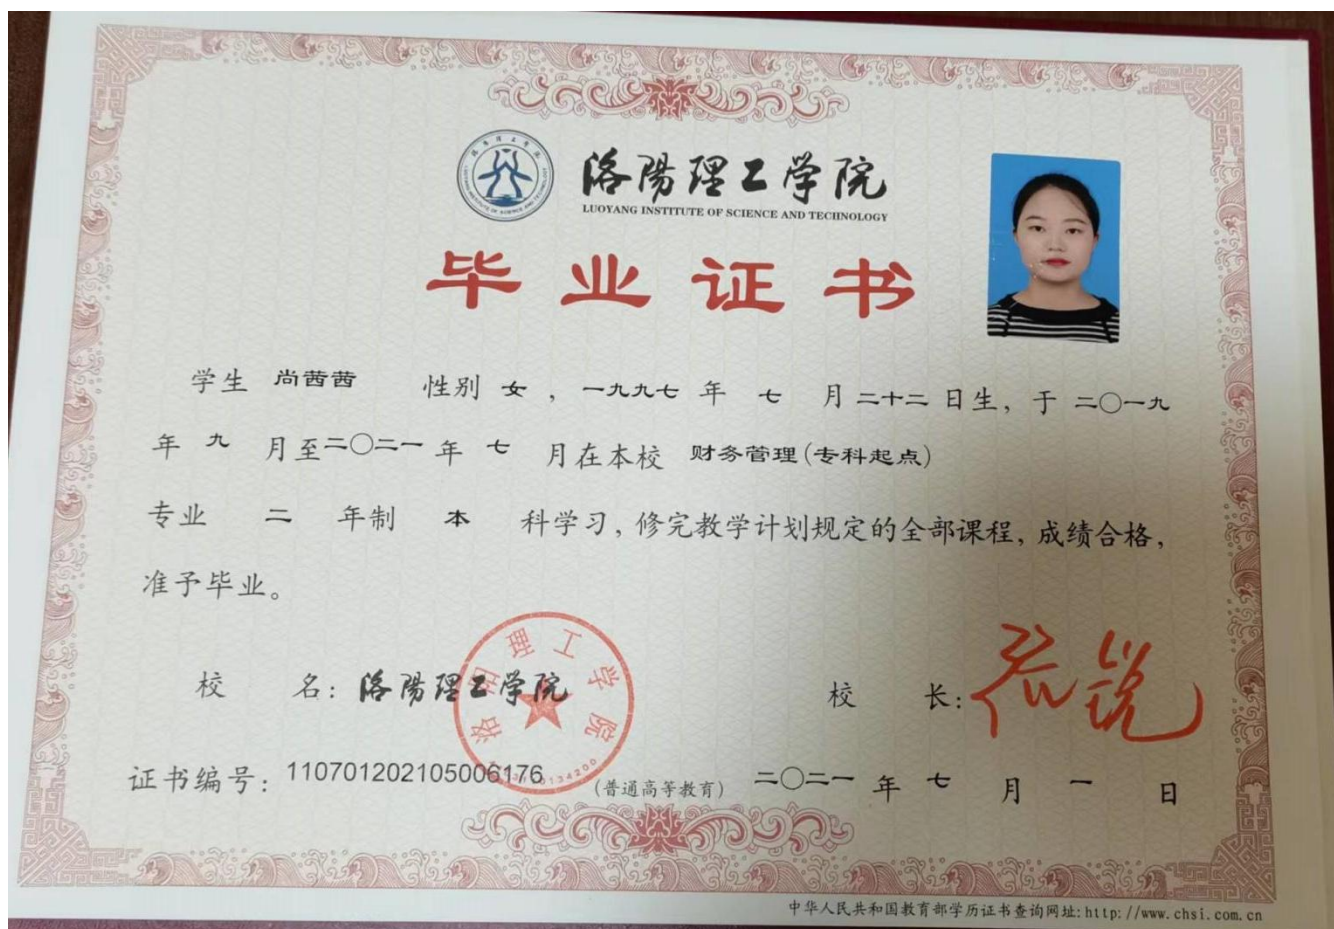 洛陽理工学院
LUOYANG INSTITUTE OF SCIENCE AND TECHNOLOGY
毕业证书
学生 尚茜茜 性别 女，一九九七 年 七 月二十二日生，于 二〇一九
年 九 月至二〇二一 年 七 月在本校 财务管理(专科起点)
专业 二 年制 本 科学习，修完教学计划规定的全部课程，成绩合格，
准予毕业。
校 名：洛陽理工学院
洛阳理工学院
校 长：
证书编号：110701202105006176
(普通高等教育)
二〇二一 年 七 月 一 日
中华人民共和国教育部学历证书查询网址:http://www.chsi.com.cn